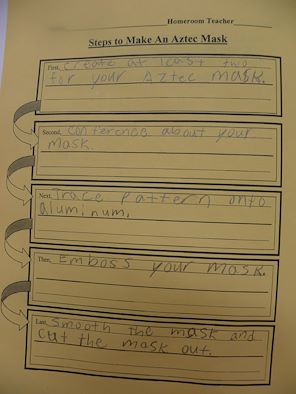 Homeroom Teacher
Steps to Make An Aztec Mask
First, create at least two
for your Aztec mask.
Second, conference about your
mask.
Next, Trace pattern onto
aluminum.
Then, Emboss your mask.
Last, Smooth the mask and
cut the mask out.